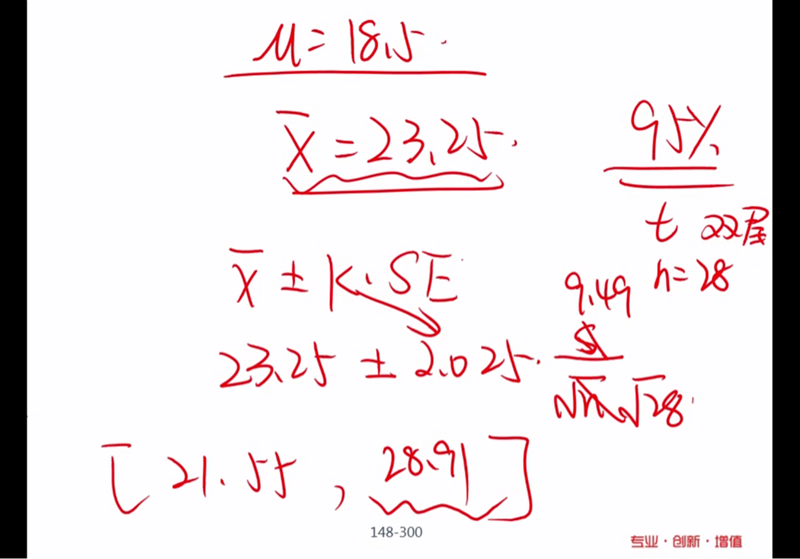 μ = 18.5.
x̄ = 23.25.
95%
t 双尾
n = 28
x̄ ± K · SE
9.49
23.25 ± 2.025 · s/√n √28.
[21.55, 28.91]
148-300
专业 · 创新 · 增值